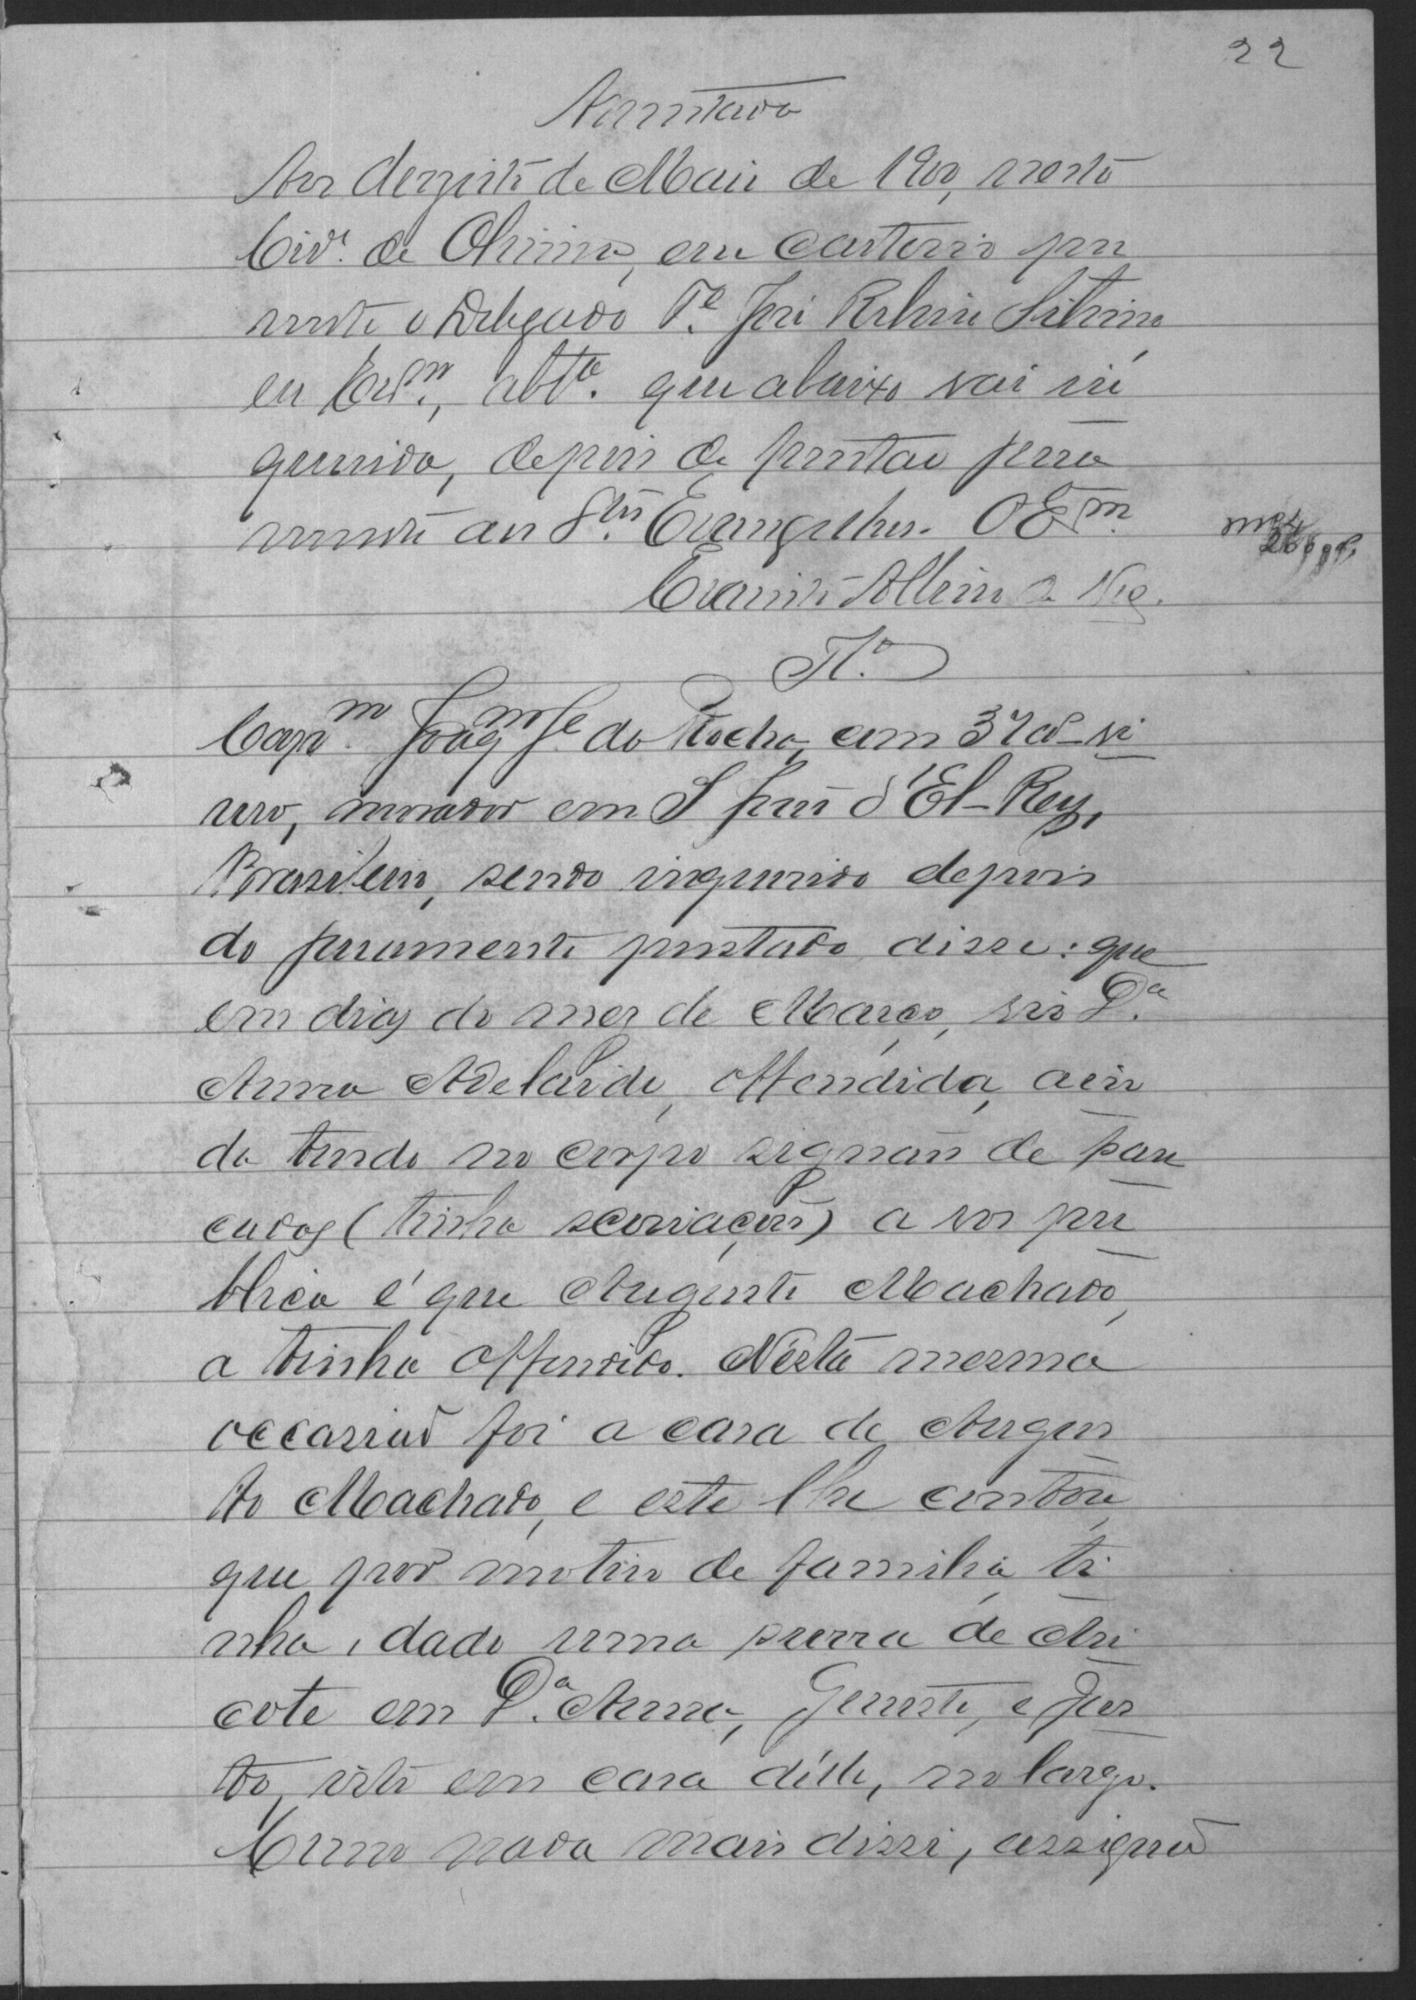 22
Assentada
Aos dezoito de Maio de 1900, nesta
Cide. de Oliveira, em cartorio pre
sente o Delegado Te. José Silvino
eu Escm., abto. que abaixo vai in
querida, depois de prestar jura
mento aos Stos Evangelhos. O Escm.
Ta.
Capm. Joaqm Je. da Rocha, com 37 as vi
uvo, morador em S João d'El-Rey,
Brasileiro, sendo inquirido depois
do juramento prestado disse: que
em dias do mez de Março, vio Da.
Anna Adelaide, offendida, ain
da tendo no corpo signaes de pan
cadas (tinha scoriações) a voz pu
blica é que Augusto Machado,
a tinha offendido. Nesta mesma
occasião foi a casa de Augus
to Machado, e este lhe contou,
que por motivo de familia ti
nha, dado uma surra de chi
cote em Da. Anna, Genesete, e Jus
to, isto em casa déste, no largo.
Como nada mais disse, assigna